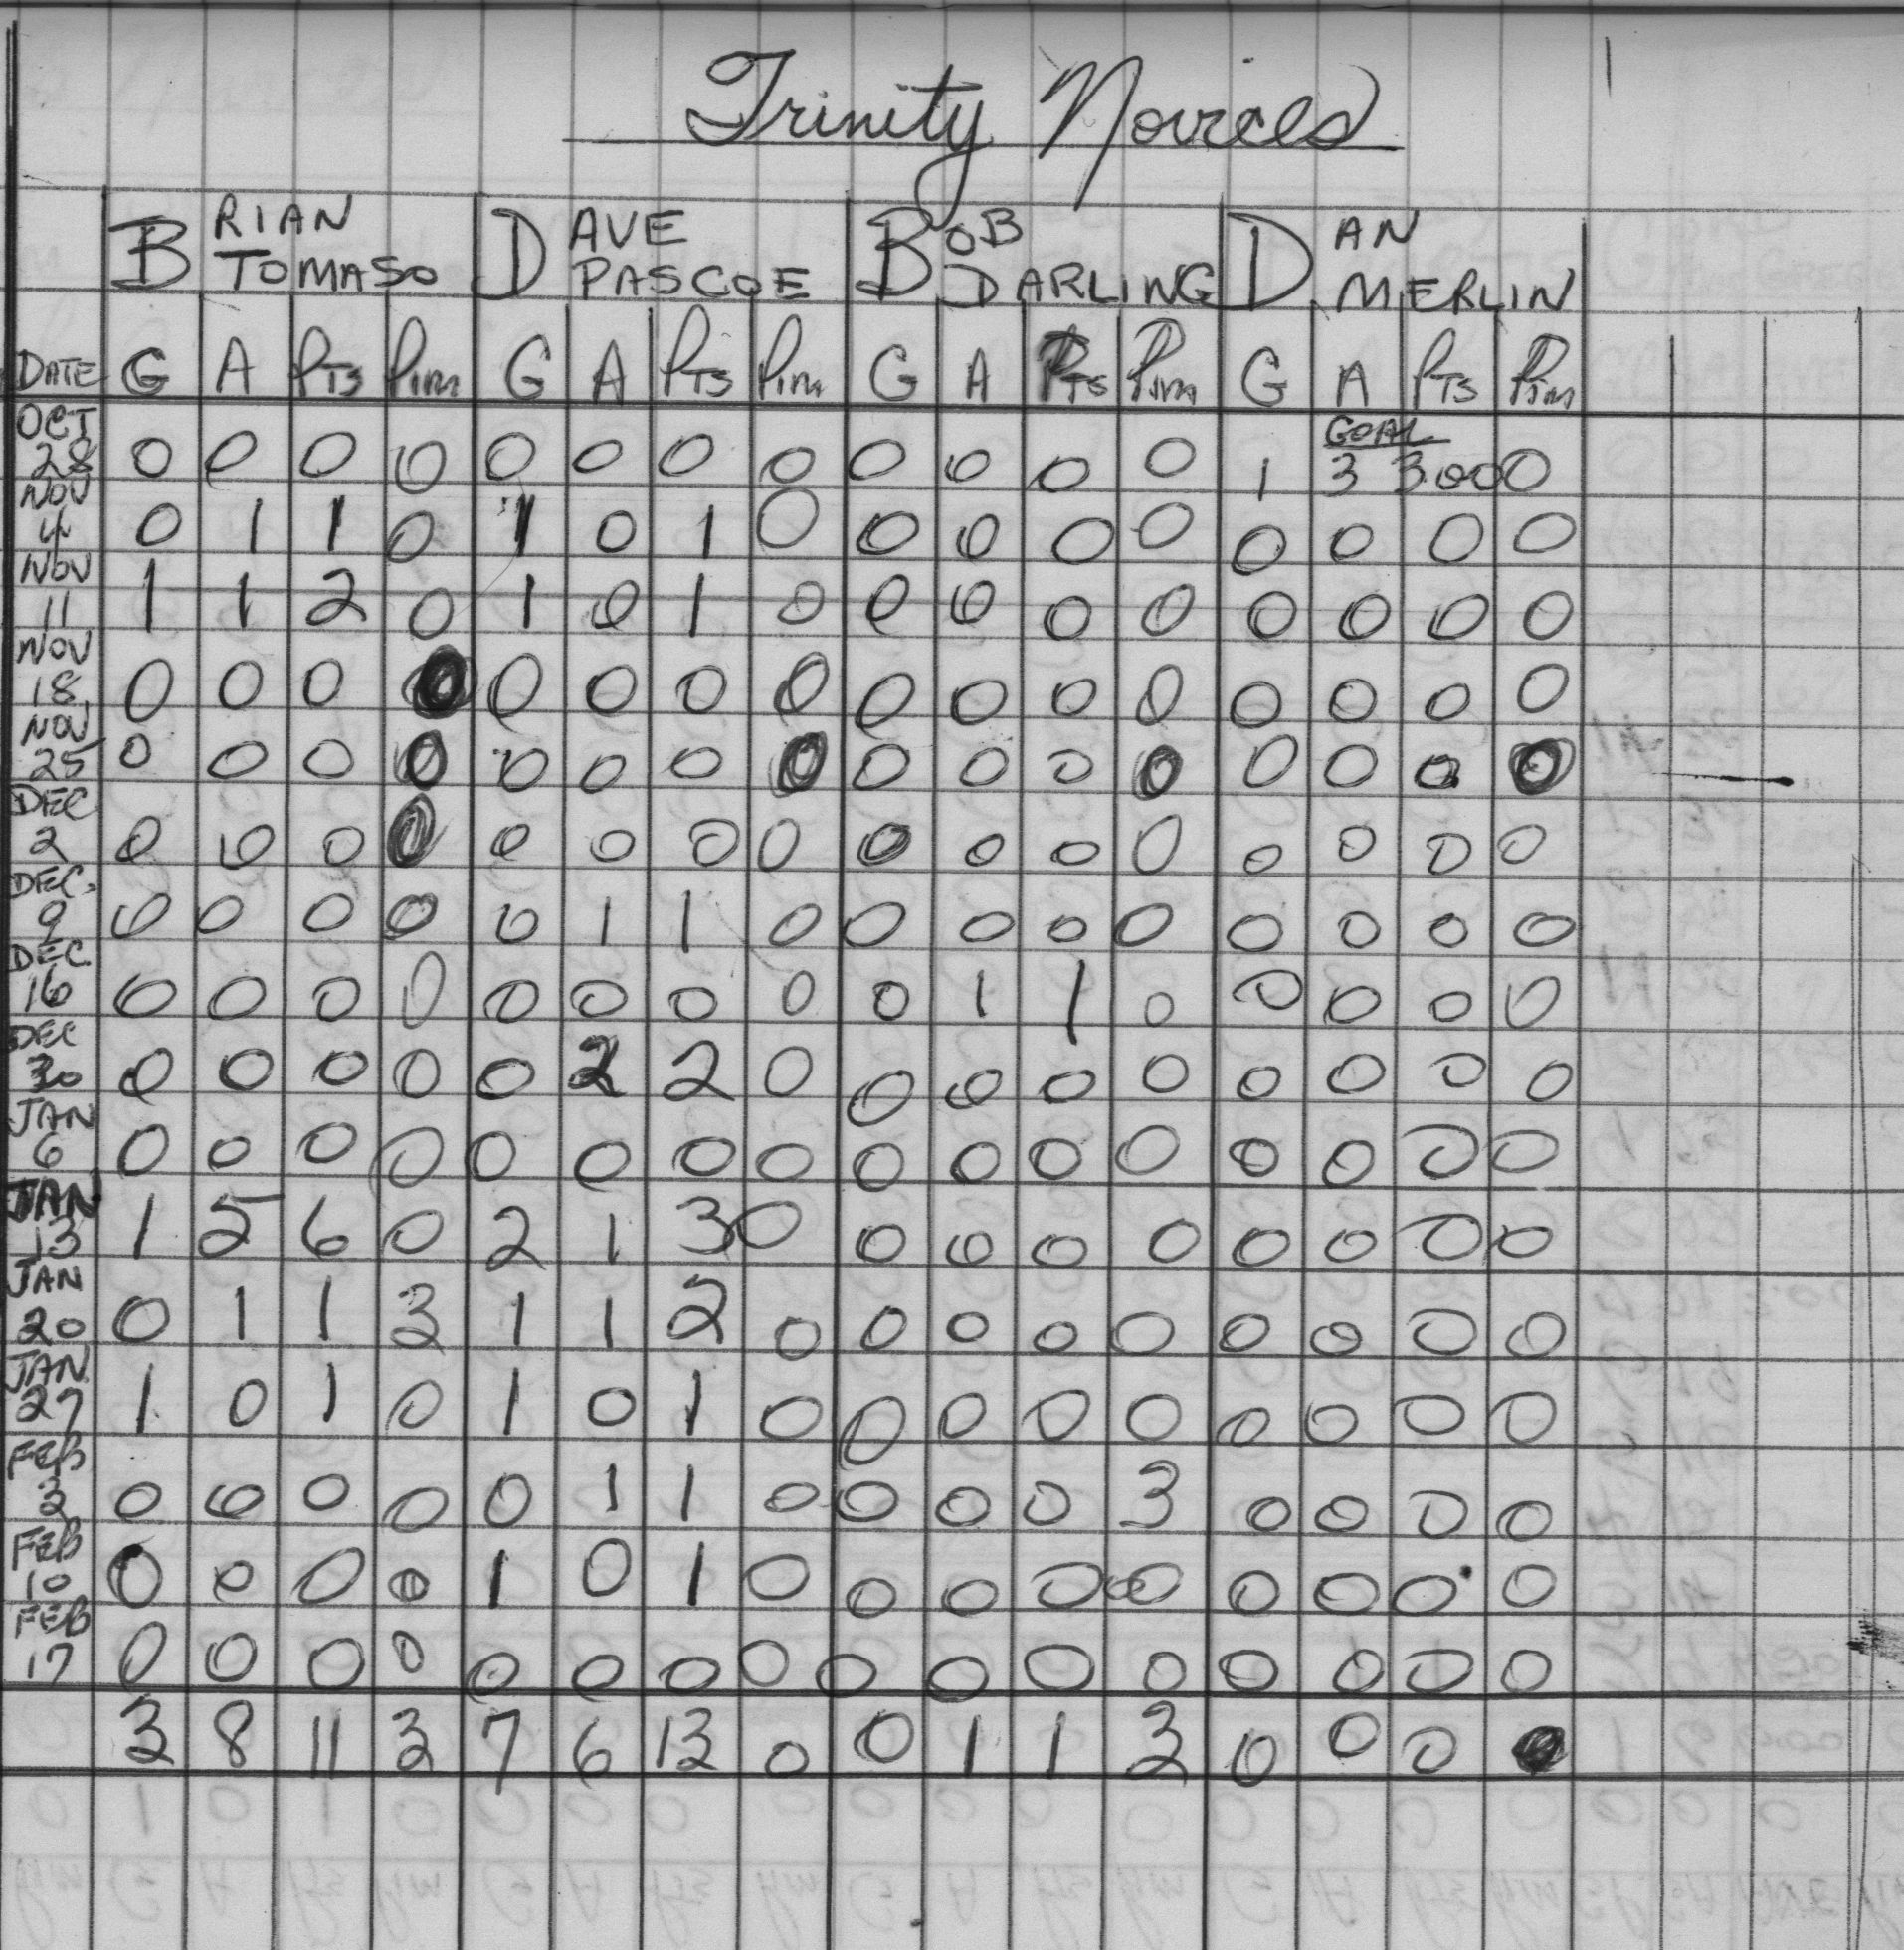 Trinity Novices
BRIAN TOMASO DAVE PASCOE BOB DARLING DAN MERLIN
DATE G A PTS PIM G A PTS PIM G A PTS PIM G A PTS PIM
OCT 28 0 0 0 0 0 0 0 0 0 0 0 0 1 GOAL 3 3.00 0
NOV 4 0 1 1 0 1 0 1 0 0 0 0 0 0 0 0 0
NOV 11 1 1 2 0 1 0 1 0 0 0 0 0 0 0 0 0
NOV 18 0 0 0 0 0 0 0 0 0 0 0 0 0 0 0 0
NOV 25 0 0 0 0 0 0 0 0 0 0 0 0 0 0 0 0
DEC 2 0 0 0 0 0 0 0 0 0 0 0 0 0 0 0 0
DEC. 9 0 0 0 0 0 1 1 0 0 0 0 0 0 0 0 0
DEC. 16 0 0 0 0 0 0 0 0 0 1 1 0 0 0 0 0
DEC 30 0 0 0 0 0 2 2 0 0 0 0 0 0 0 0 0
JAN 6 0 0 0 0 0 0 0 0 0 0 0 0 0 0 0 0
JAN 13 1 5 6 0 2 1 3 0 0 0 0 0 0 0 0 0
JAN 20 0 1 1 3 1 1 2 0 0 0 0 0 0 0 0 0
JAN 27 1 0 1 0 1 0 1 0 0 0 0 0 0 0 0 0
FEB 3 0 0 0 0 0 1 1 0 0 0 0 3 0 0 0 0
FEB 10 0 0 0 0 1 0 1 0 0 0 0 0 0 0 0 0
FEB 17 0 0 0 0 0 0 0 0 0 0 0 0 0 0 0 0
3 8 11 3 7 6 13 0 0 1 1 3 0 0 0 0